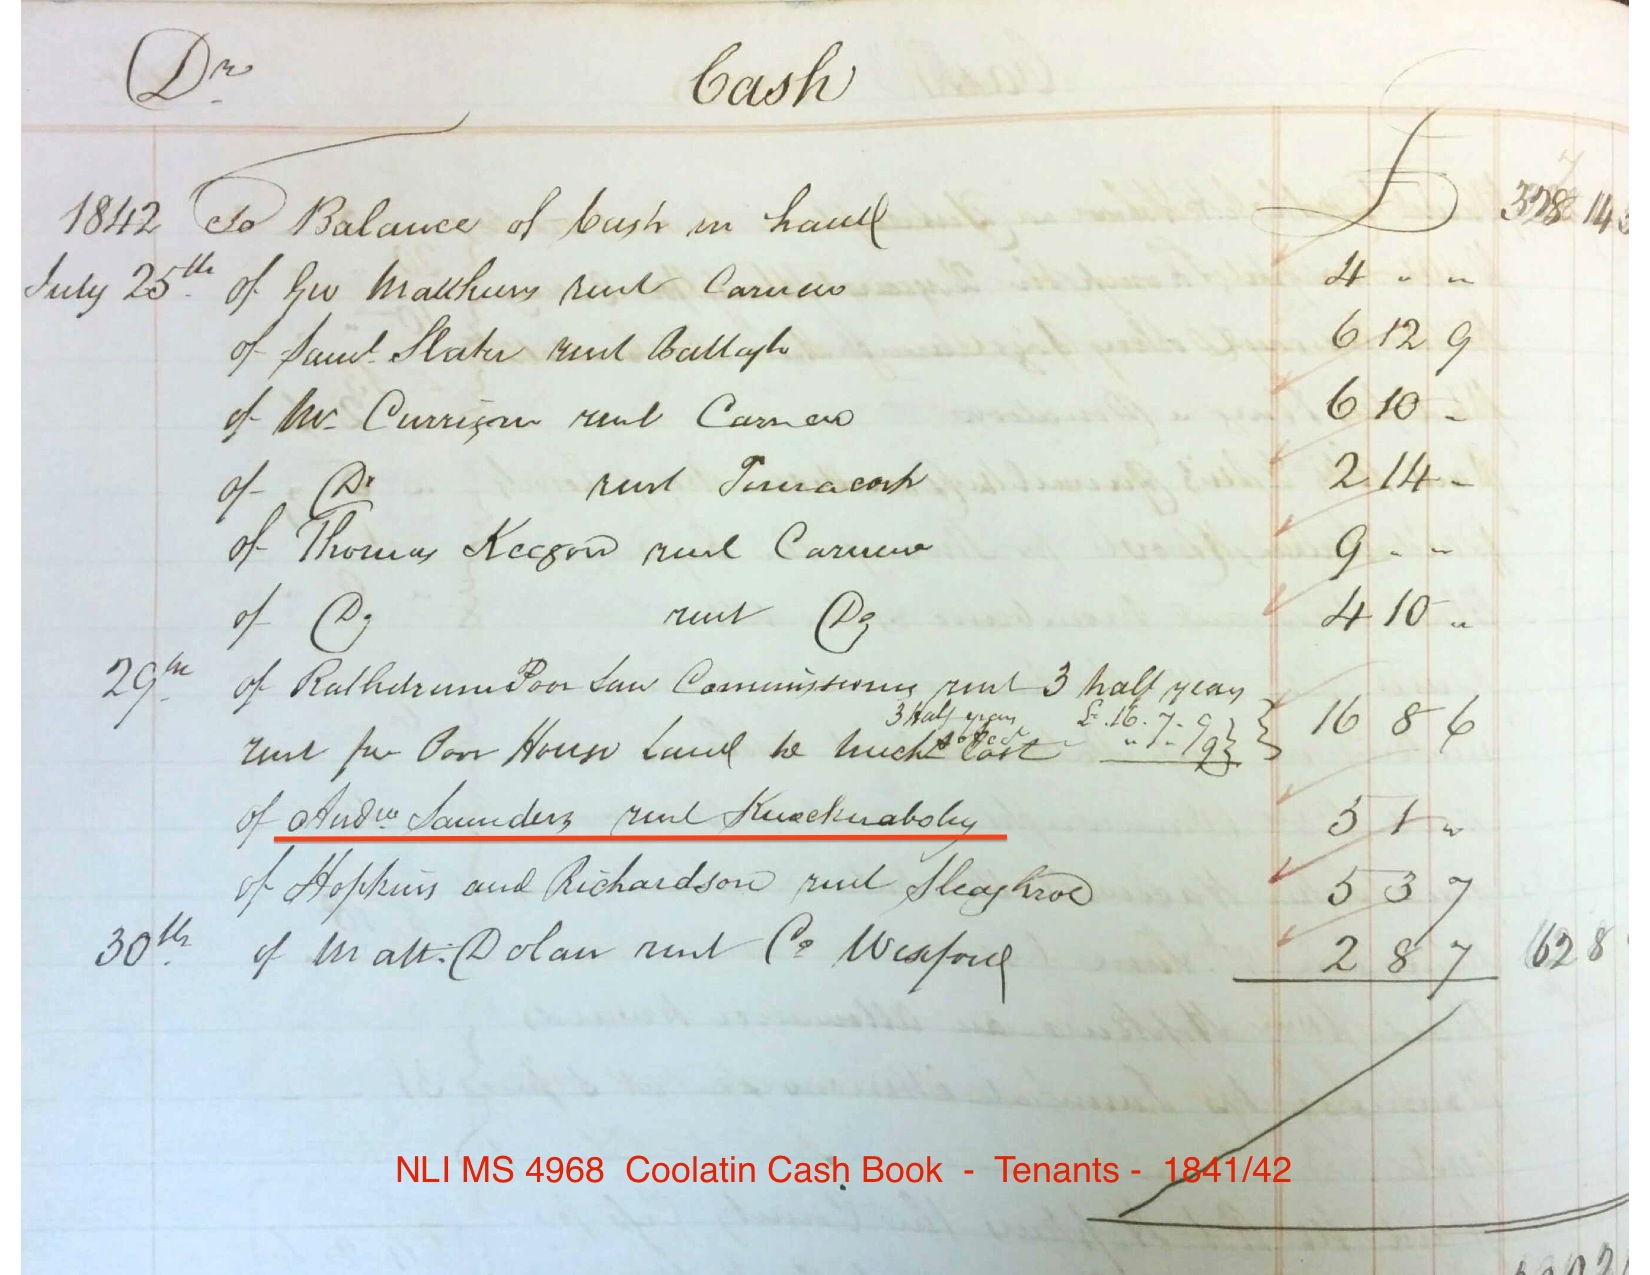 Dr Cash
1842 To Balance of Cash in hand £ 14
July 25th of Geo Matthews rent Carnew 4 " "
of Saml. Slater rent Ballagh 6 12 9
of Mr. Currigan rent Carnew 6 10 -
of Do rent Tomacork 2 14 -
of Thomas Keegan rent Carnew 9 - -
of Do rent Do 4 10 "
29th of Rathdrum Poor Law Commissioners rent 3 half years
3 half years £.16.7.9
rent for Poor House Land " 1 - 9 16 8 6
of Andw Saunders rent Knocknaboley 5 1 "
of Hopkins and Richardson rent Sleaghroe 5 3 7
30th. of Matt. Dolan rent Co Wexford 2 8 7 62 8
NLI MS 4968 Coolatin Cash Book - Tenants - 1841/42